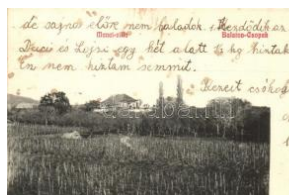 de sajnos előre nem haladok. Kezdődik az
Manci-villa Balaton-Csopak
Duci és Lojzi egy hét alatt 2 kg híztak
Én nem híztam semmit.
Kezeit csókol